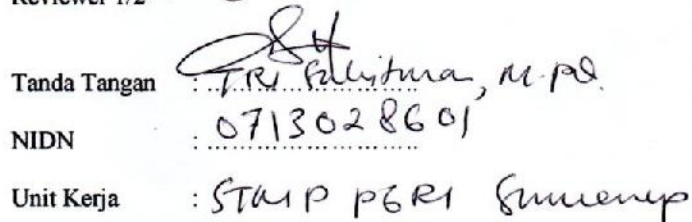 Reviewer 1/2
Tanda Tangan : TRI Sukitman, M.Pd.
NIDN : 0713028601
Unit Kerja : STKIP PGRI Sumenep